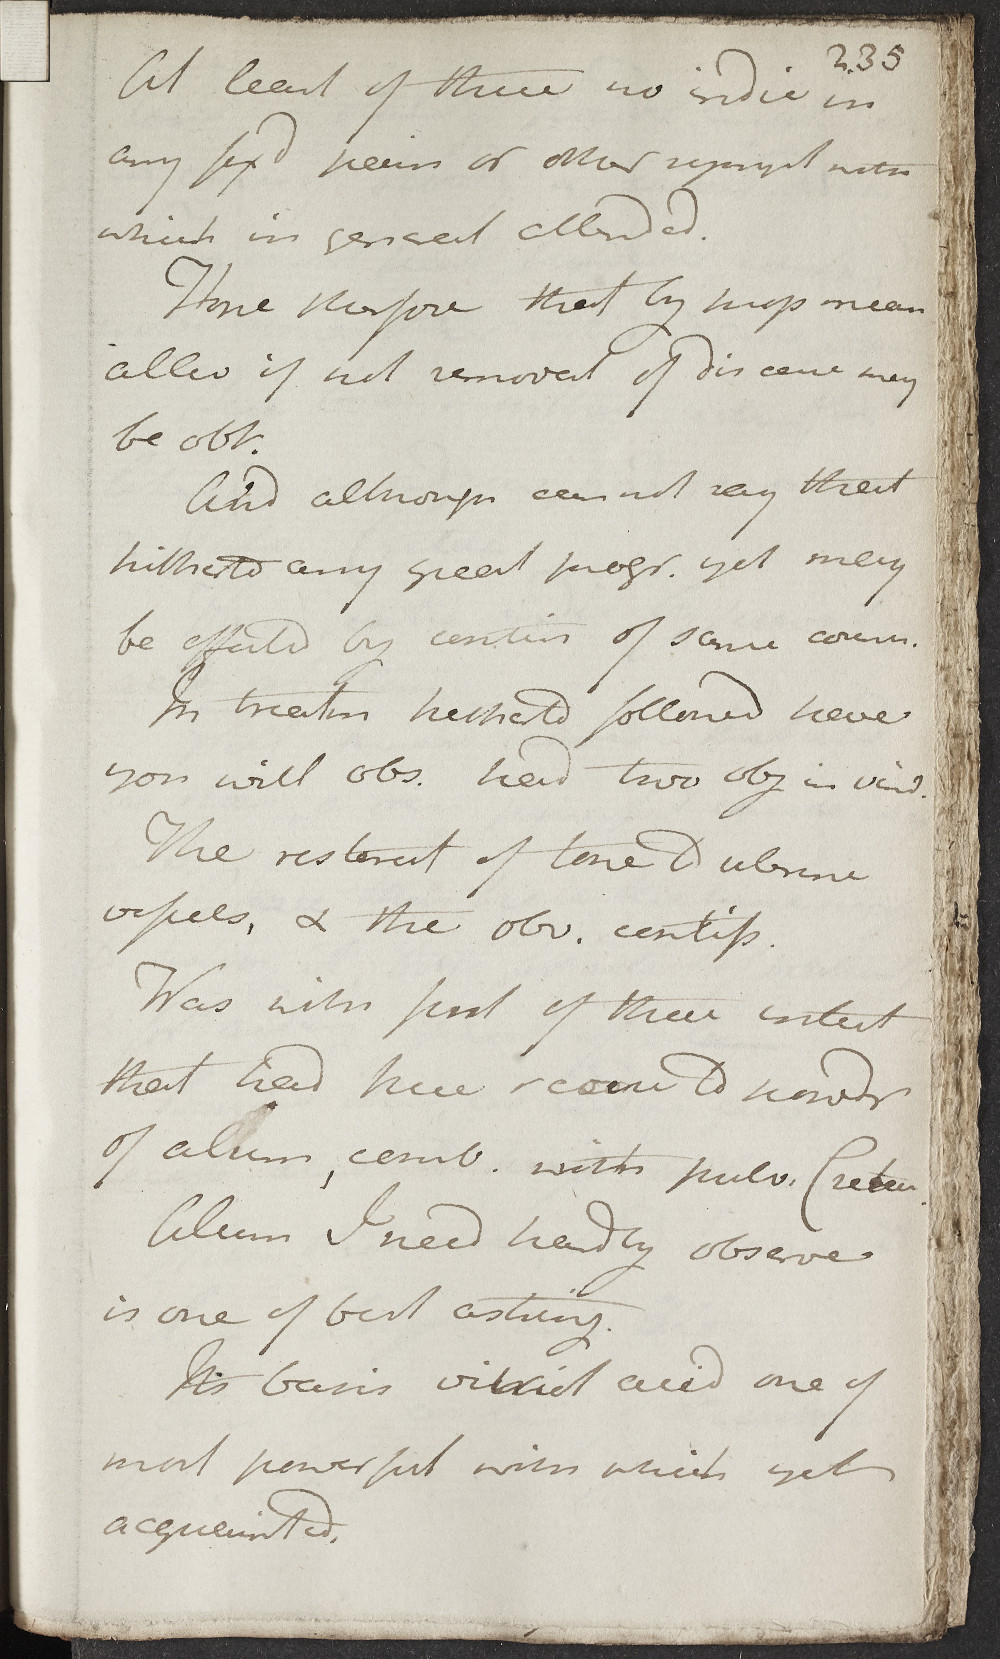 235
At least of these no indic in
any fix'd pain or other sympt with
which in general attended.
Hope therefore that by prop mean
allev if not removal of disease may
be obt.
And although can not say that
hitherto any great progr. yet may
be effected by contin of same course.
In treatm hitherto followed have
you will obs. had two obj in vind.
The restorat of tone to uterine
vessels, & the obv. costiss.
Was with first of these intent
that had here recourse to powdr
of alum, comb. with pulv. Cretac.
Alum I need hardly observe
is one of best astring.
Its basis vitriol acid one of
most powerful with which yet
acquainted.